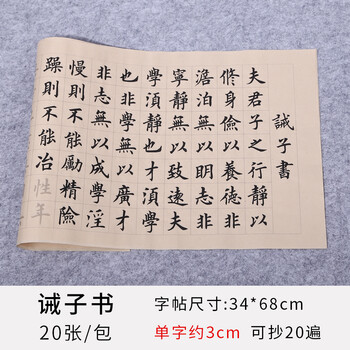 誡子書
夫君子之行靜以
修身儉以養德非
澹泊無以明志非
寧靜無以致遠夫
學湏靜也才湏學
也非學無以廣才
非志無以成學淫
慢則不能勵精險
躁則不能冶性年
诫子书
20张/包
字帖尺寸:34*68cm
单字约3cm 可抄20遍